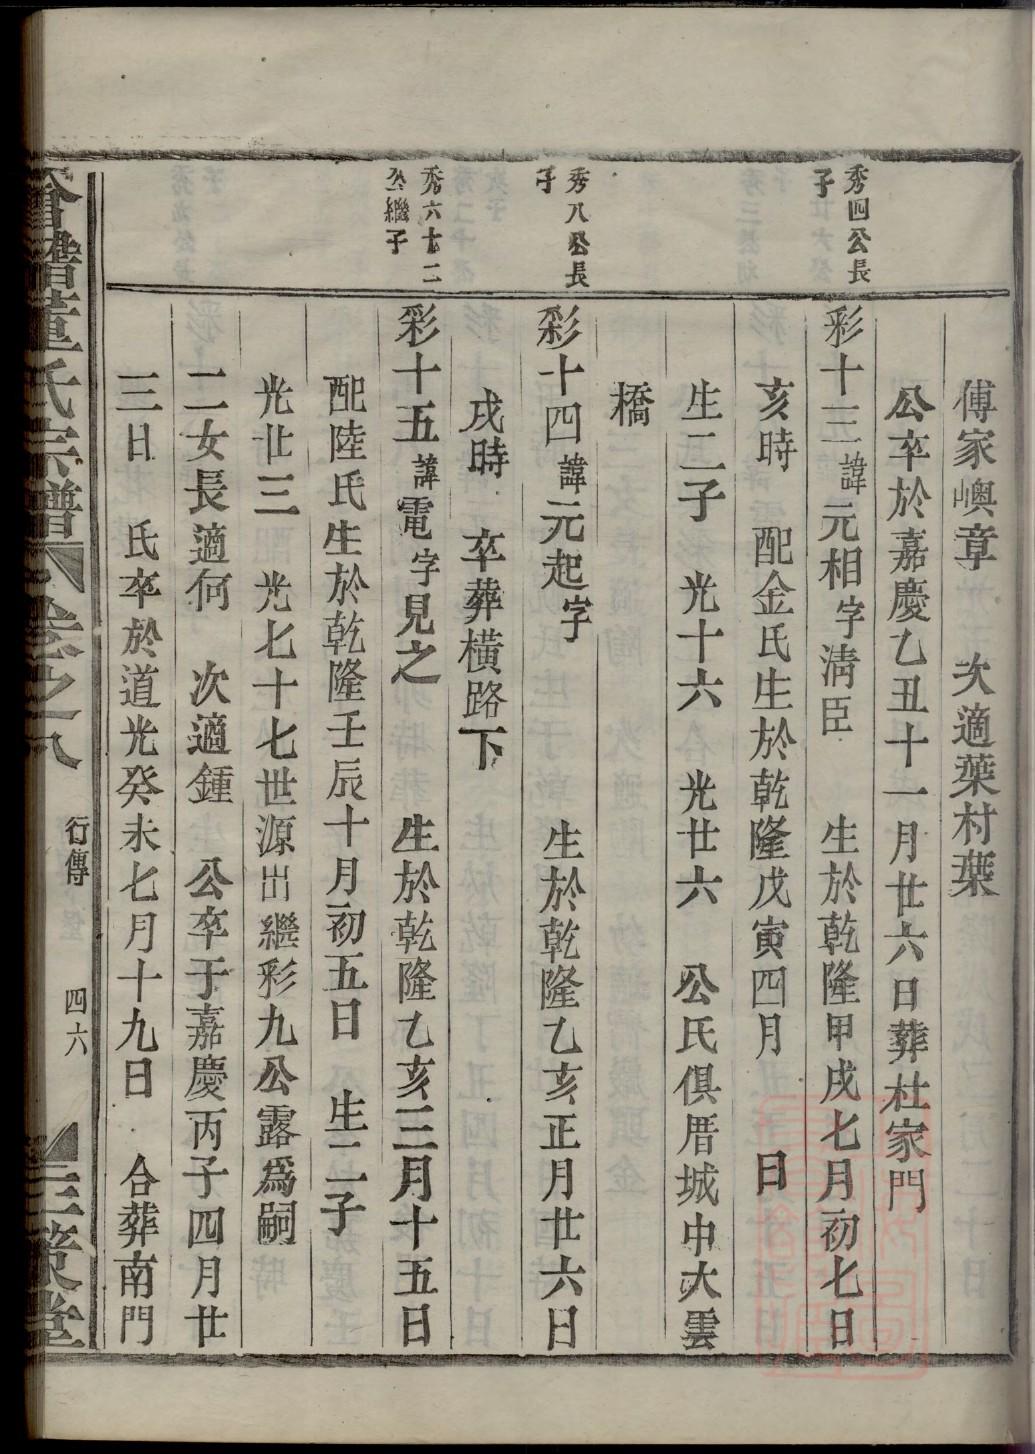 傅家嶴章　次適葉村葉
公卒於嘉慶乙丑十一月廿六日葬杜家門
秀四公長
子
彩十三諱元相字淸臣　生於乾隆甲戌七月初七日
亥時　配金氏生於乾隆戊寅四月　日
生二子　光十六　光廿六　公氏俱厝城中大雲
橋
秀八公長
子
彩十四諱元起字　生於乾隆乙亥正月廿六日
戌時　卒葬橫路下
秀六十二
公繼子
彩十五諱電字見之　生於乾隆乙亥三月十五日
配陸氏生於乾隆壬辰十月初五日　生二子
光廿三　光七十七世源出繼彩九公露爲嗣
二女長適何　次適鍾　公卒于嘉慶丙子四月廿
三日　氏卒於道光癸未七月十九日　合葬南門
會稽董氏宗譜　卷之八　行傳　四六　三策堂